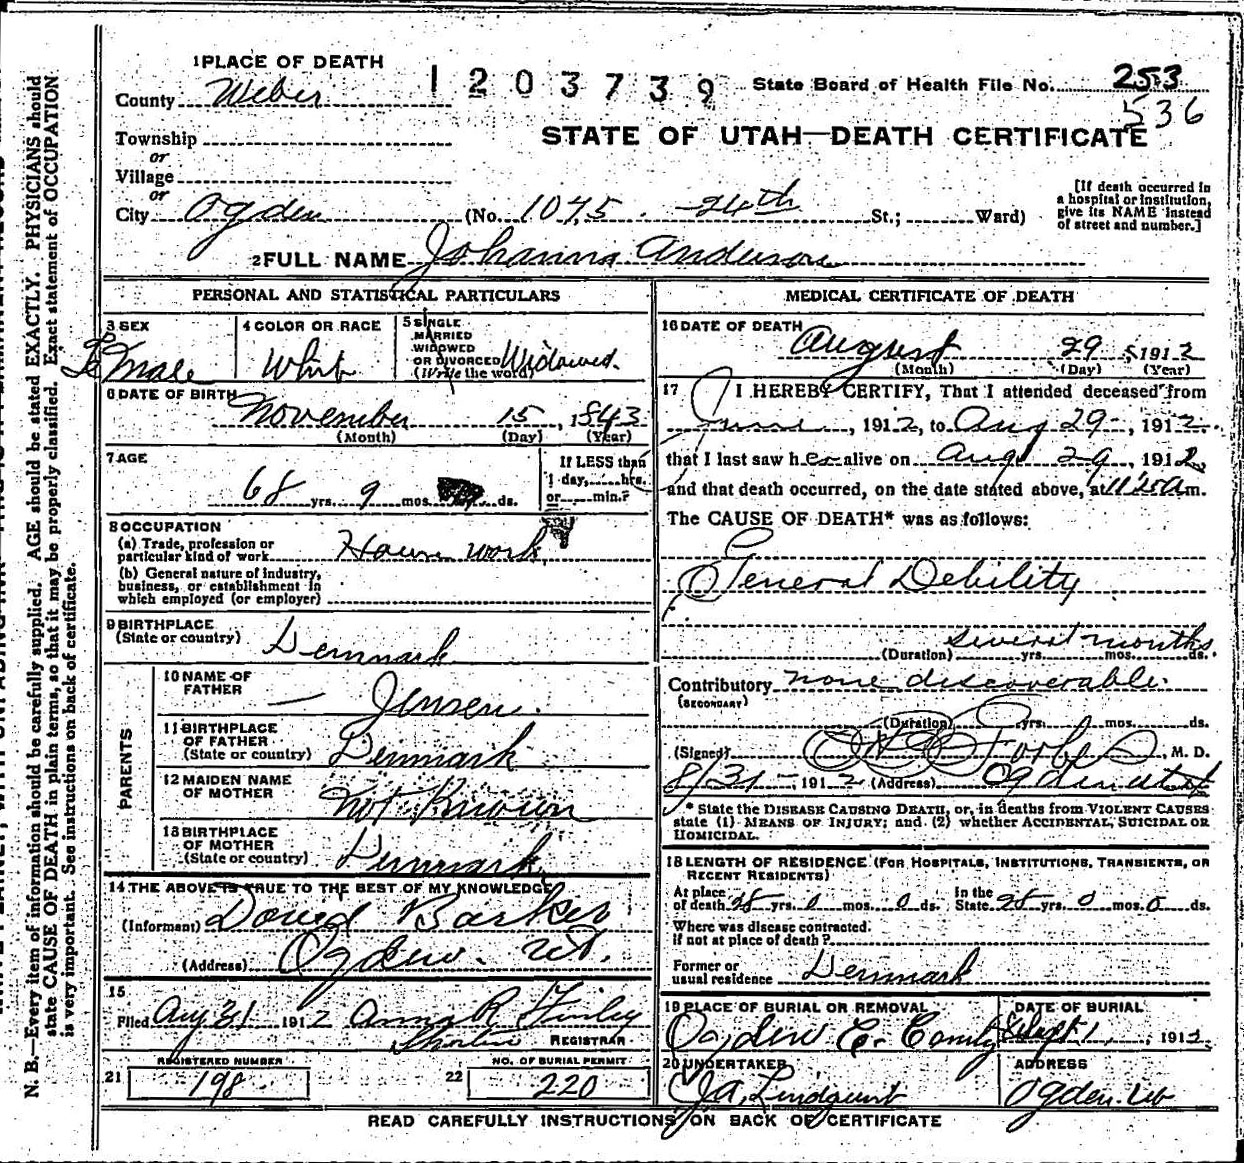 1 PLACE OF DEATH
1203739 State Board of Health File No. 253
536
County Weber
STATE OF UTAH—DEATH CERTIFICATE
Township
or
Village
or
City Ogden (No. 1075 24th St.; Ward)
[If death occurred in a hospital or institution, give its NAME instead of street and number.]
2 FULL NAME Johanna Anderson
PERSONAL AND STATISTICAL PARTICULARS
3 SEX
Female
4 COLOR OR RACE
Whit
5 SINGLE
MARRIED
WIDOWED
OR DIVORCED
(Write the word)
Widowed.
6 DATE OF BIRTH
November 15, 1843
(Month) (Day) (Year)
7 AGE
68 yrs. 9 mos. ds.
If LESS than
1 day, hrs.
or min.?
8 OCCUPATION
(a) Trade, profession or
particular kind of work House work
(b) General nature of industry,
business, or establishment in
which employed (or employer)
9 BIRTHPLACE
(State or country) Denmark
PARENTS
10 NAME OF
FATHER — Jensen.
11 BIRTHPLACE
OF FATHER
(State or country) Denmark
12 MAIDEN NAME
OF MOTHER Not Known
13 BIRTHPLACE
OF MOTHER
(State or country) Denmark
14 THE ABOVE IS TRUE TO THE BEST OF MY KNOWLEDGE
(Informant) David Barker
(Address) Ogden. Ut.
15
Filed Aug 31 1912 Anna R Finley
REGISTRAR
REGISTERED NUMBER
21 198
NO. OF BURIAL PERMIT
22 220
MEDICAL CERTIFICATE OF DEATH
16 DATE OF DEATH
August 29 1912
(Month) (Day) (Year)
17 I HEREBY CERTIFY, That I attended deceased from
June, 1912, to Aug 29-, 1912
that I last saw her alive on Aug 29, 1912
and that death occurred, on the date stated above, at m.
The CAUSE OF DEATH* was as follows:
General Debility
several months
(Duration) yrs. mos. ds.
Contributory none discoverable.
(SECONDARY)
(Duration) yrs. mos. ds.
(Signed) Forbes, M. D.
8/31-, 1912 (Address) Ogden Utah
* State the DISEASE CAUSING DEATH, or, in deaths from VIOLENT CAUSES
state (1) MEANS OF INJURY; and (2) whether ACCIDENTAL, SUICIDAL OR
HOMICIDAL.
18 LENGTH OF RESIDENCE (FOR HOSPITALS, INSTITUTIONS, TRANSIENTS, OR
RECENT RESIDENTS)
At place
of death 28 yrs. 0 mos. 0 ds.
In the
State 28 yrs. 0 mos. 0 ds.
Where was disease contracted
if not at place of death?
Former or
usual residence Denmark
19 PLACE OF BURIAL OR REMOVAL
Ogden C.
DATE OF BURIAL
Sept 1, 1912
20 UNDERTAKER
J.A. Lindquist
ADDRESS
Ogden Ut
READ CAREFULLY INSTRUCTIONS ON BACK OF CERTIFICATE
N. B.—Every item of information should be carefully supplied. AGE should be stated EXACTLY. PHYSICIANS should
state CAUSE OF DEATH in plain terms, so that it may be properly classified. Exact statement of OCCUPATION
is very important. See instructions on back of certificate.